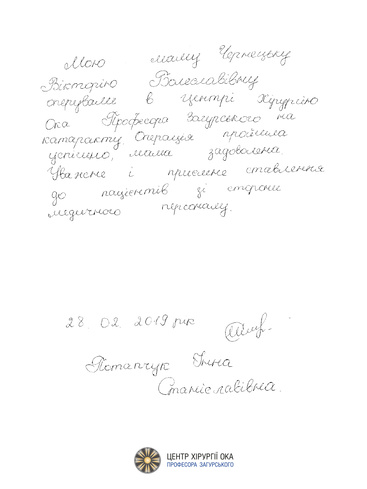 Мою маму Чернецьку
Вікторію Болеславівну
оперували в центрі Хірургію
Ока Професора Загурського на
катаракту. Операція пройшла
успішно, мама задоволена.
Уважне і приємне ставлення
до пацієнтів зі сторони
медичного персоналу.
28. 02. 2019 рік
Потапчук Інна
Станіславівна.
ЦЕНТР ХІРУРГІЇ ОКА
ПРОФЕСОРА ЗАГУРСЬКОГО